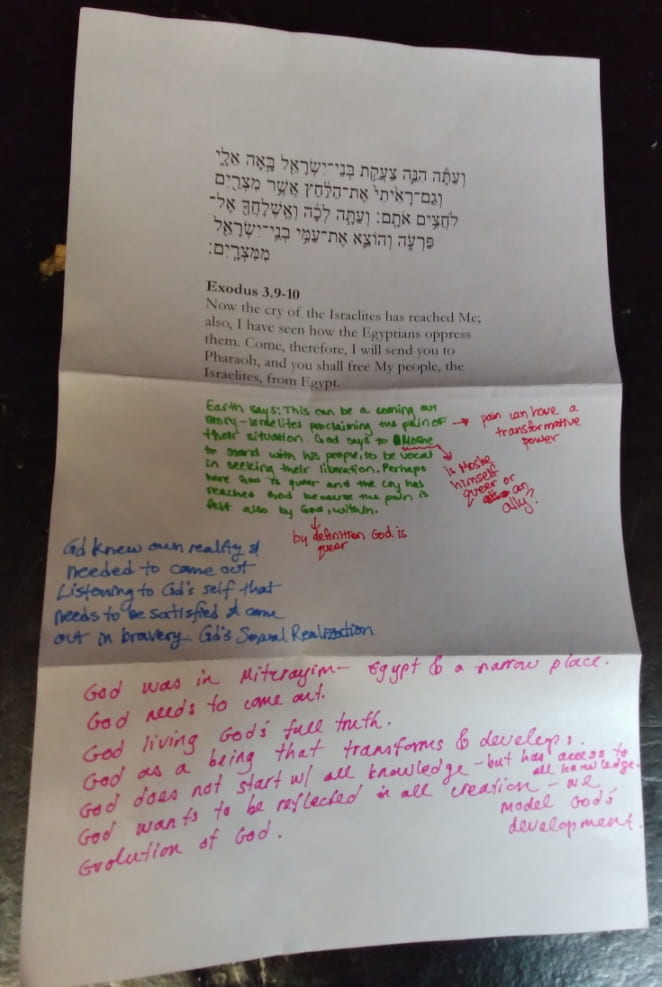 וְעַתָּ֕ה הִנֵּ֛ה צַעֲקַ֥ת בְּנֵי־יִשְׂרָאֵ֖ל בָּ֣אָה אֵלָ֑י
וְגַם־רָאִ֙יתִי֙ אֶת־הַלַּ֔חַץ אֲשֶׁ֥ר מִצְרַ֖יִם
לֹחֲצִ֥ים אֹתָֽם׃ וְעַתָּ֣ה לְכָ֔ה וְאֶֽשְׁלָחֲךָ֖ אֶל־
פַּרְעֹ֑ה וְהוֹצֵ֛א אֶת־עַמִּ֥י בְנֵֽי־יִשְׂרָאֵ֖ל
מִמִּצְרָֽיִם׃
Exodus 3.9-10
Now the cry of the Israelites has reached Me;
also, I have seen how the Egyptians oppress
them. Come, therefore, I will send you to
Pharaoh, and you shall free My people, the
Israelites, from Egypt.
Earth says: This can be a coming out
story - Israelites proclaiming the pain of
their situation. God says to Moshe
to stand with his people, to be vocal
in seeking their liberation. Perhaps
here God is queer and the cry has
reached God because the pain is
felt also by God, within.
→ pain can have a
transformative
power
is Moshe
himself
queer or
an
ally?
by definition God is
queer
Gd knew own reality &
needed to come out
Listening to Gd's self that
needs to be satisfied & come
out in bravery - Gd's Sexual Realization
God was in Mitzrayim - Egypt & a narrow place.
God needs to come out.
God living God's full truth.
God as a being that transforms & develops.
God does not start w/ all knowledge - but has access to
all knowledge.
God wants to be reflected in all creation - we
model God's
development.
Evolution of God.